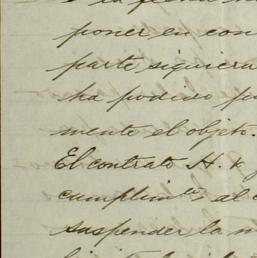 poner en con
parte siquiera
ha podido pu
mente el objeto.
El contrato H. v
cumplim.tos al
suspender la m